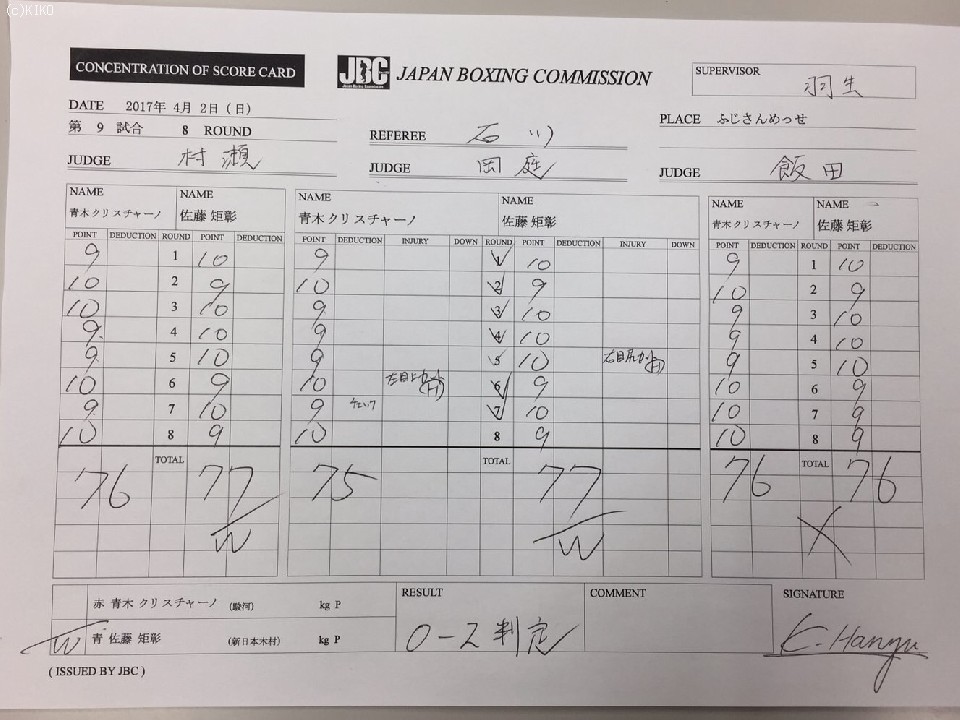 (c)KIKO
CONCENTRATION OF SCORE CARD
JBC JAPAN BOXING COMMISSION
SUPERVISOR 羽生
DATE 2017年 4月 2日(日)
第 9 試合 8 ROUND
REFEREE 石川
PLACE ふじさんめっせ
JUDGE 村瀬
JUDGE 岡庭
JUDGE 飯田
NAME NAME NAME NAME NAME NAME
青木クリスチャーノ 佐藤 矩彰 青木クリスチャーノ 佐藤 矩彰 青木クリスチャーノ 佐藤 矩彰
POINT DEDUCTION ROUND POINT DEDUCTION POINT DEDUCTION INJURY DOWN ROUND POINT DEDUCTION INJURY DOWN POINT DEDUCTION ROUND POINT DEDUCTION
9 1 10 9 1 10 9 1 10
10 2 9 10 2 9 10 2 9
10 3 10 9 3 10 9 3 10
9 4 10 9 4 10 9 4 10
9 5 10 9 5 10 9 5 10
10 6 9 10 6 9 10 6 9
9 7 10 9 7 10 10 7 9
10 8 9 10 8 9 10 8 9
TOTAL TOTAL TOTAL
76 77 75 77 76 76
W W X
赤 青木 クリスチャーノ (駿河) kg P
W 青 佐藤 矩彰 (新日本木村) kg P
RESULT
0-2 判定
COMMENT
SIGNATURE
K. Hanyu
( ISSUED BY JBC )